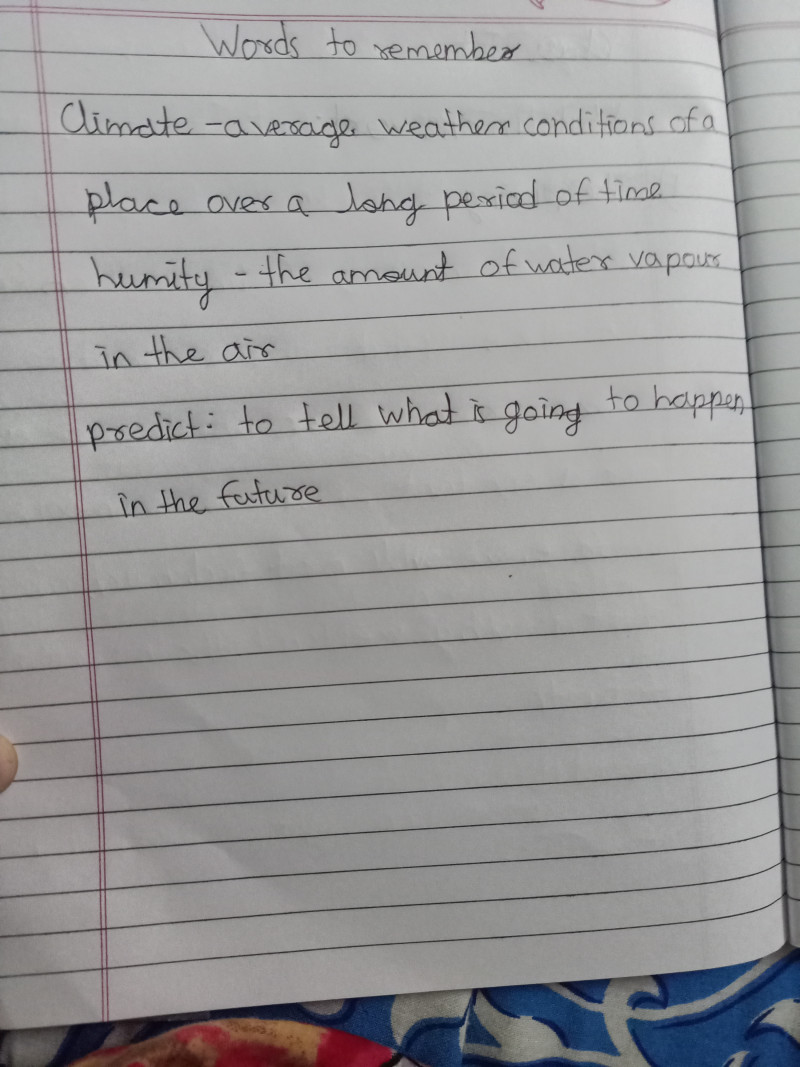 Words to remember
Climate - average weather conditions of a
place over a long period of time
humity - the amount of water vapour
in the air
predict: to tell what is going to happen
in the future